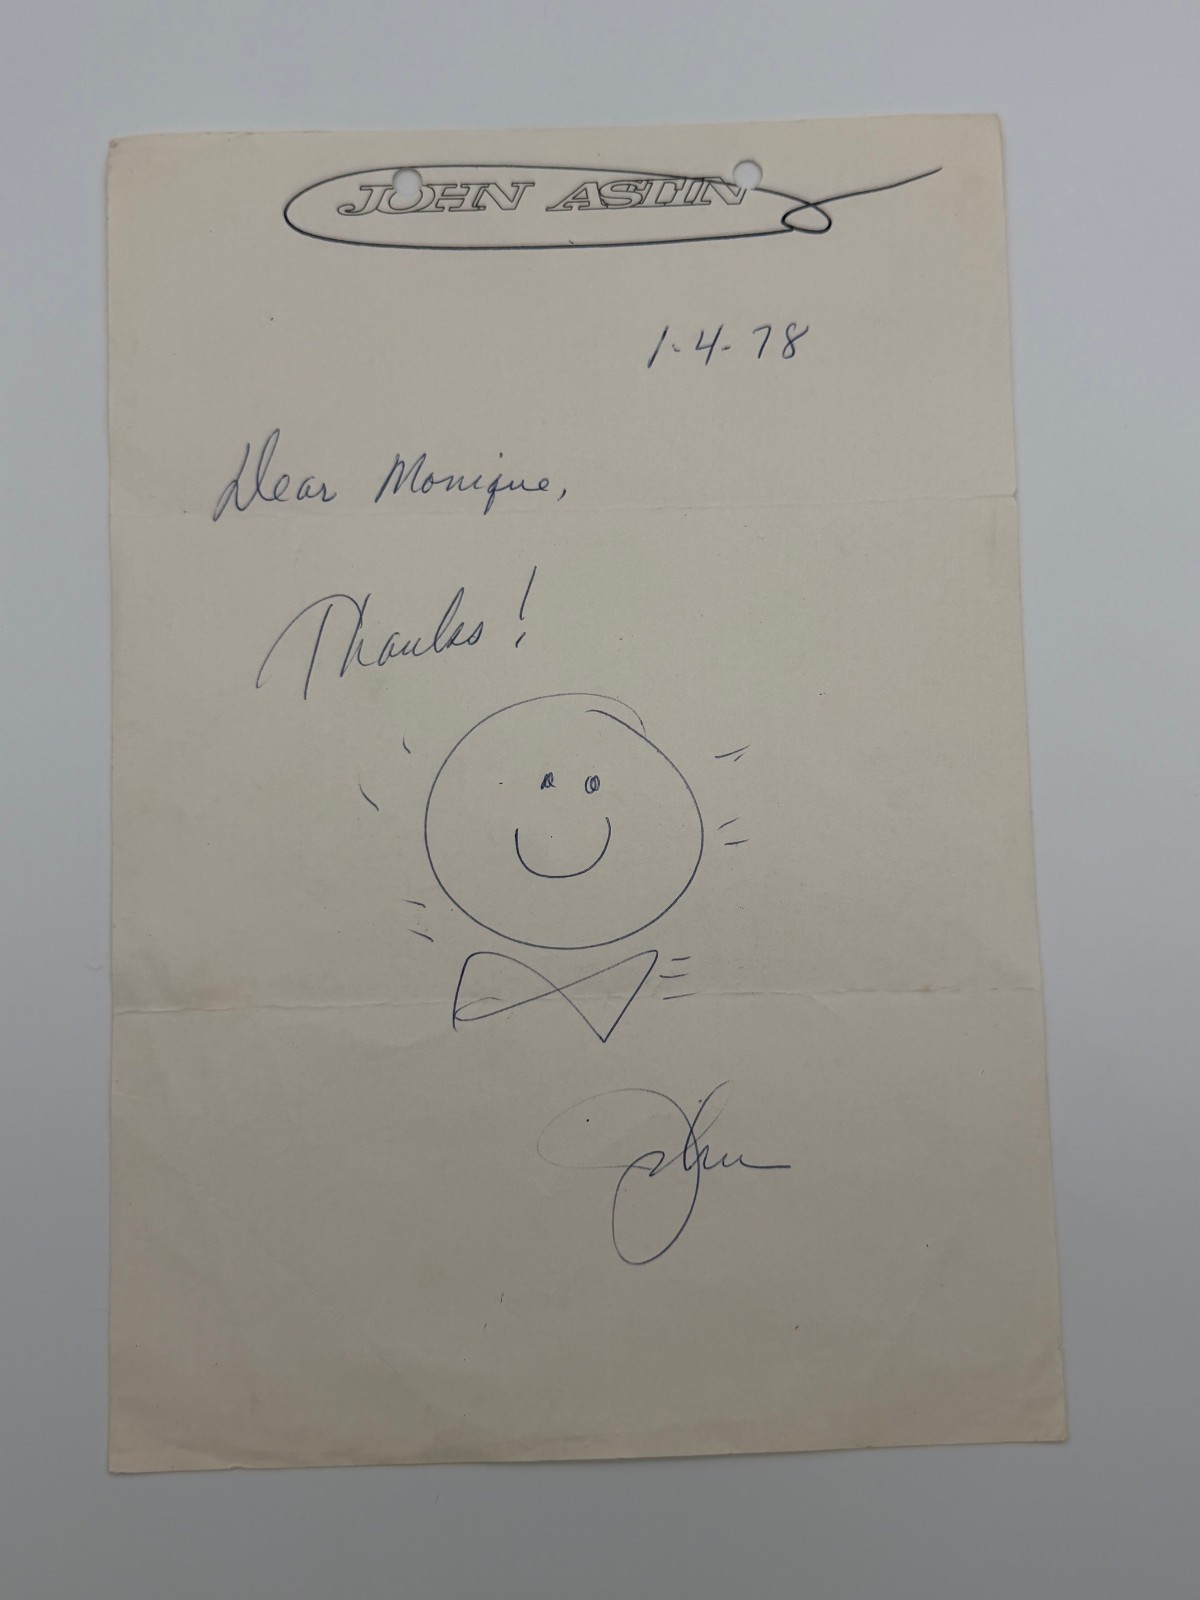 JOHN ASTIN
1-4-78
Dear Monique,
Thanks!
John